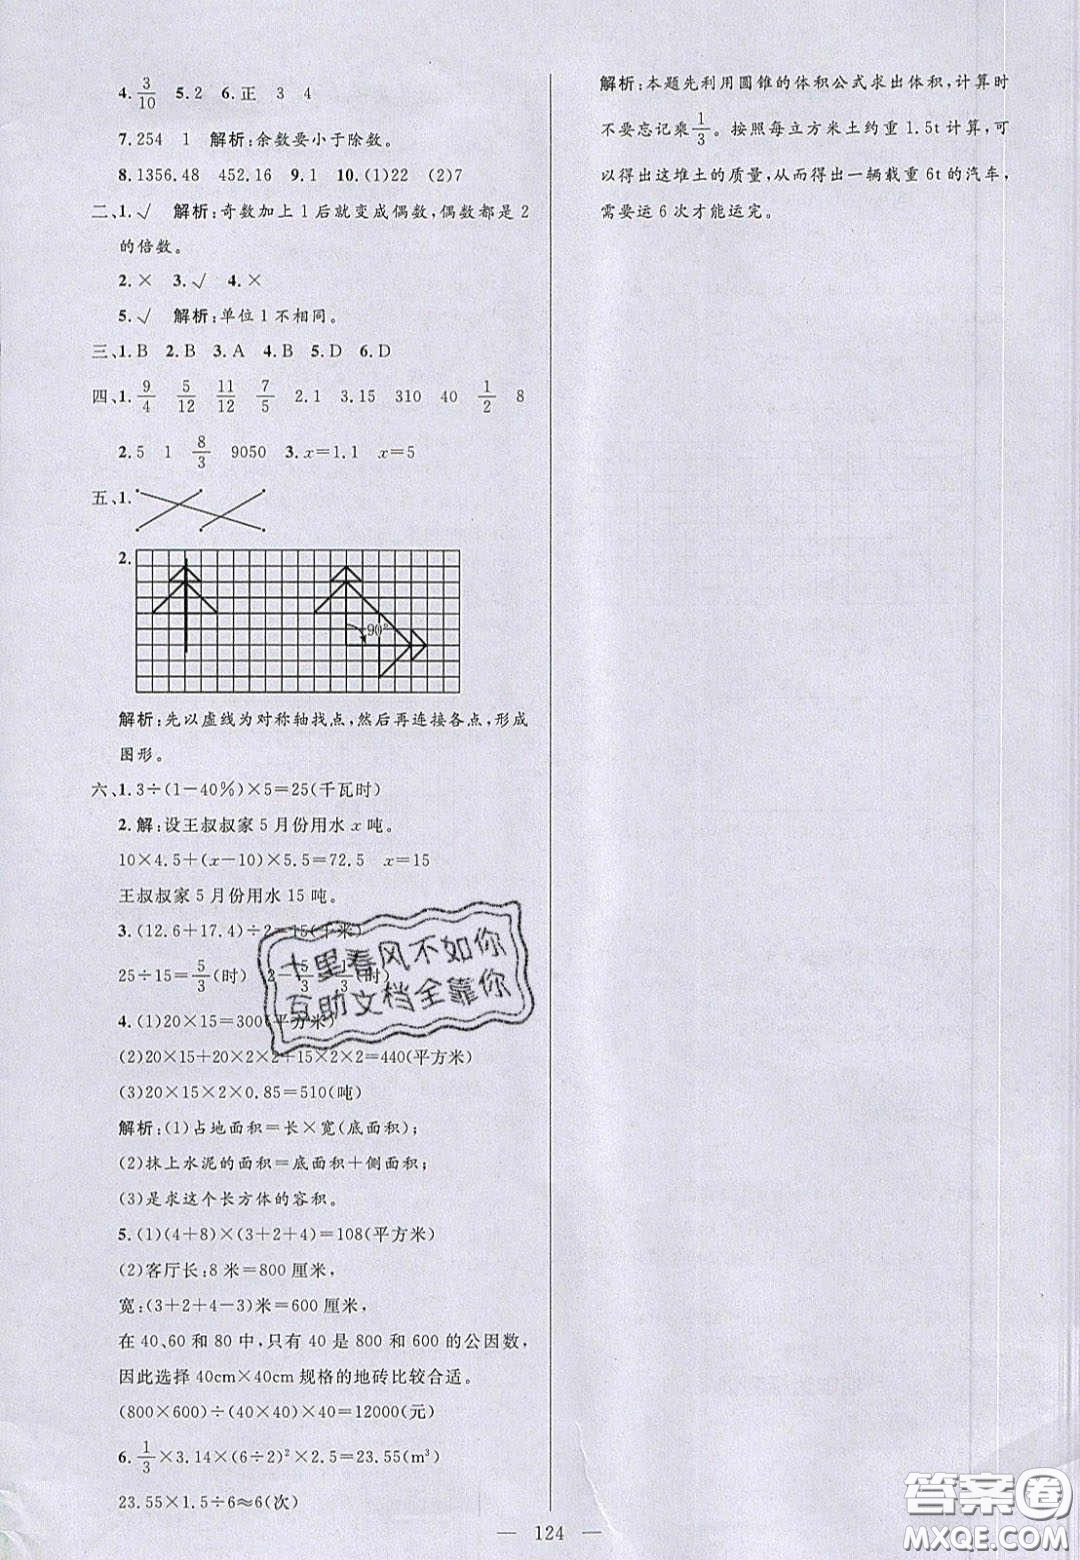 4. 3/10  5. 2  6. 正  3  4
7. 254  1  解析:余数要小于除数。
8. 1356.48  452.16  9. 1  10. (1)22  (2)7
二、1. √  解析:奇数加上1后就变成偶数,偶数都是2
的倍数。
2. ×  3. √  4. ×
5. √  解析:单位1不相同。
三、1. B  2. B  3. A  4. B  5. D  6. D
四、1. 9/4  5/12  11/12  7/5  2.1  3.15  310  40  1/2  8
2. 5  1  8/3  9050  3. x=1.1  x=5
五、1.
2.
90°
解析:先以虚线为对称轴找点,然后再连接各点,形成
图形。
六、1. 3÷(1-40%)×5=25(千瓦时)
2. 解:设王叔叔家5月份用水x吨。
10×4.5+(x-10)×5.5=72.5  x=15
王叔叔家5月份用水15吨。
3. (12.6+17.4)÷2=15(千米)
25÷15=5/3(时)  2-5/3=1/3(时)
4. (1)20×15=300(平方米)
(2)20×15+20×2×2+15×2×2=440(平方米)
(3)20×15×2×0.85=510(吨)
解析:(1)占地面积=长×宽(底面积);
(2)抹上水泥的面积=底面积+侧面积;
(3)是求这个长方体的容积。
5. (1)(4+8)×(3+2+4)=108(平方米)
(2)客厅长:8米=800厘米,
宽:(3+2+4-3)米=600厘米,
在40、60和80中,只有40是800和600的公因数,
因此选择40cm×40cm规格的地砖比较合适。
(800×600)÷(40×40)×40=12000(元)
6. 1/3×3.14×(6÷2)²×2.5=23.55(m³)
23.55×1.5÷6≈6(次)
解析:本题先利用圆锥的体积公式求出体积,计算时
不要忘记乘1/3。按照每立方米土约重1.5t计算,可
以得出这堆土的质量,从而得出一辆载重6t的汽车,
需要运6次才能运完。
十里春风不如你
互助文档全靠你
— 124 —
答案圈
MXQE.COM